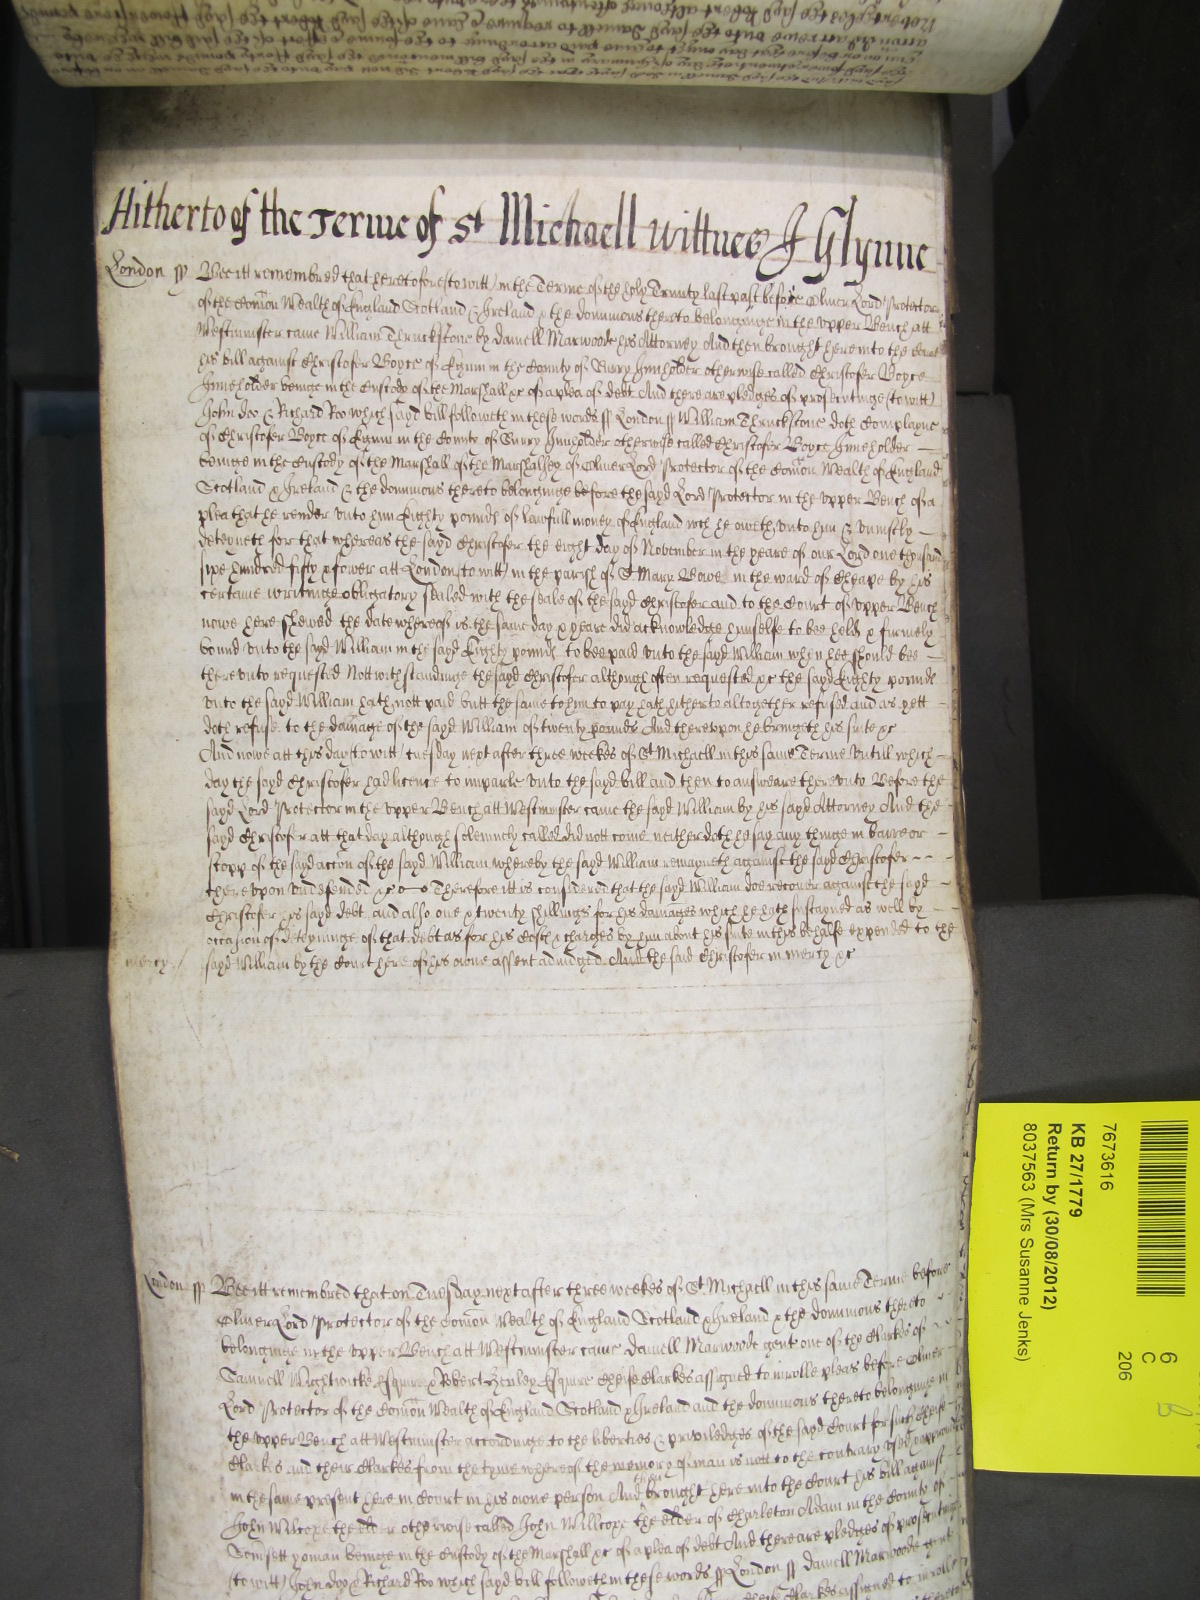 Hitherto of the Terme of St Michaell wittnes J Glynne
London ss Bee itt remembred that heretofore (to witt) in the Terme of the holy Trinity last past before Oliver Lord Protector
of the Comon Wealth of England Scotland & Ireland & the dominions thereto belonginge in the vpper Bench att
Westminster came William Thruckstone by Daniell Marwoode his Attorney And then brought here into the Court
his bill against Christofer Boyce of in the County of Surry Inneholder otherwise called Christofer Boyce
Inneholder beinge in the Custody of the Marshall &c of a plea of debt And there are pledges of prosecutinge (to witt)
John Doo & Richard Roo which sayd bill followeth in these words ss London ss William Thruckstone doth Complayne
of Christofer Boyce of in the County of Surry Inneholder otherwise called Christofer Boyce Inneholder
beinge in the Custody of the Marshall of the Marshalsey of Oliver Lord Protector of the Comon Wealth of England
Scotland & Ireland & the dominions thereto belonginge before the sayd Lord Protector in the vpper Bench of a
plea that he render vnto him Eighty pounds of lawfull money of England wch he oweth vnto him & viniustly
deteyneth for that whereas the sayd Christofer the eight day of November in the yeare of our Lord one thousand
sixe hundred fifty & fower att London (to witt) in the parish of St Mary Bowe in the ward of Cheape by his
certaine writinge obligatory sealed with the seale of the sayd Christofer and to the Court of vpper Bench
nowe here shewed the date whereof is the same day & yeare did acknowledge himselfe to bee held & firmely
bound vnto the sayd William in the sayd Eighty pounds to bee paid vnto the sayd William when hee should bee
therevnto requested Nottwithstandinge the sayd Christofer although often requested &c the sayd Eighty pounds
vnto the sayd William hath nott paid butt the same to him to pay hath hitherto altogether refused and as yett
doth refuse to the damage of the sayd William of twenty pounds And therevpon he bringeth his suite &c
And nowe att this day (to witt) tuesday next after three weekes of St Michaell in this same Terme Vntill which
day the sayd Christofer had licence to imparle vnto the sayd bill and then to answeare therevnto Before the
sayd Lord Protector in the vpper Bench att Westminster came the sayd William by his sayd Attorney And the
sayd Christofer att that day although solemnely called did nott come neither doth he say any thinge in barre or
stopp of the sayd action of the sayd William whereby the sayd William remayneth against the sayd Christofer
therevpon vndefended &c Therefore itt is considered that the sayd William doe recover against the sayd
Christofer his sayd debt and also one & twenty shillings for his damages which he hath sustayned as well by
occasion of deteyninge of that debt as for his Costs & charges by him about his suite in this behalfe expended to the
mercy sayd William by the Court here of his owne assent adiudged And the said Christofer in mercy &c
London ss Bee itt remembred that on Tuesday next after three weekes of St Michaell in this same Terme before
Oliver Lord Protector of the Comon Wealth of England Scotland & Ireland & the dominions thereto
belonginge in the vpper Bench att Westminster came Daniell Marwoode gent one of the Clarkes of
Samuell Wightwicke Esquire & Robert Henley Esquire Cheife Clarkes assigned to inrolle pleas before Oliver
Lord Protector of the Comon Wealth of England Scotland & Ireland and the dominions thereto belonginge in
the vpper Bench att Westminster accordinge to the liberties & priviledges of the sayd Court for such Cheife
Clarkes and their Clarkes from the tyme whereof the memory of man is nott to the contrary vsed
in the same present here in Court in his owne person And then brought here into the Court his bill against
John Wilcoxe the elder otherwise called John Willcoxe the elder of Charleton Adam in the County of
Somsett yoman beinge in the Custody of the Marshall &c of a plea of debt And there are pledges of prosecutinge
(to witt) John Doo & Richard Roo which sayd bill followeth in these words ss London ss Daniell Marwoode gent
Cheife Clarkes assigned to inrolle
7673616
KB 27/1779
Return by (30/08/2012)
8037563 (Mrs Susanne Jenks)
6
C
206